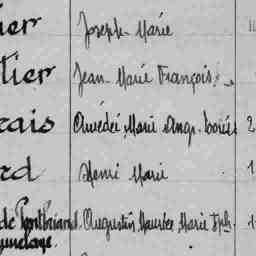 ier Joseph Marie 11
tier Jean Marie François
rais Amédée Marie Ange 2
rd Henri Marie 1
de Pontbriand Augustin, Maurice, Marie Jph 1